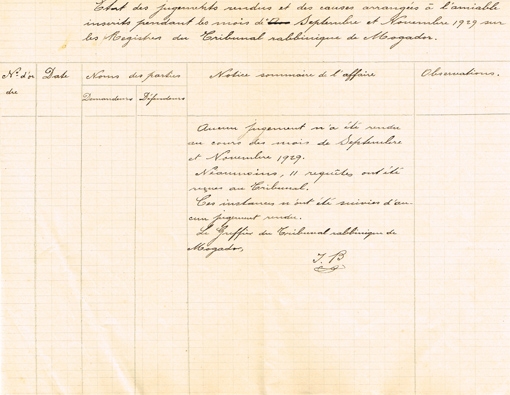 Etat des jugements rendus et des causes arrangés à l'amiable
inscrits pendant les mois d' Septembre et Novembre 1929 sur
les Registres du Tribunal rabbinique de Mogador.
No d'or
dre
Date
Noms des parties
Demandeurs Défendeurs
Notice sommaire de l'affaire
Observations.
Aucun jugement n'a été rendu
au cours des mois de Septembre
et Novembre 1929.
Néanmoins, 11 requêtes ont été
reçues au Tribunal.
Ces instances n'ont été suivies d'au-
cun jugement rendu.
Le Greffier du Tribunal rabbinique de
Mogador,
J. B